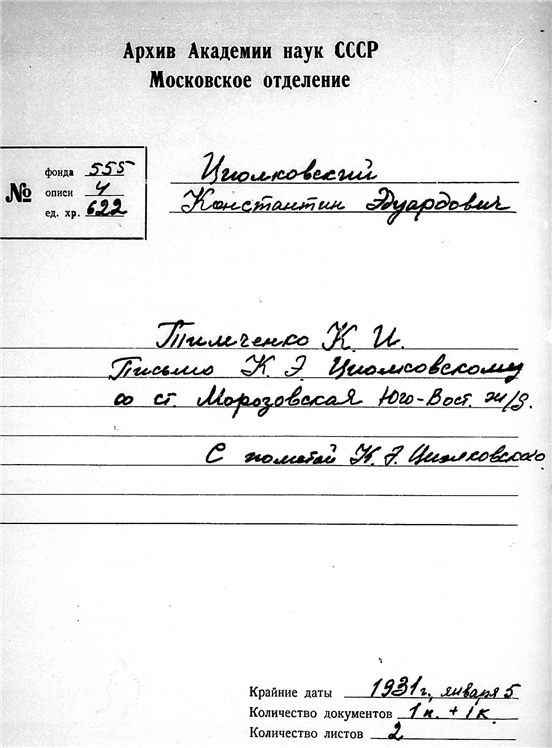 Архив Академии наук СССР
Московское отделение
№
фонда 555
описи 4
ед. хр. 622
Циолковский
Константин Эдуардович
Тимченко К. И.
Письмо К. Э. Циолковскому
со ст. Морозовская Юго-Вост. ж/д.
С пометой К. Э. Циолковского
Крайние даты 1931 г., января 5
Количество документов 1 п. + 1 к.
Количество листов 2